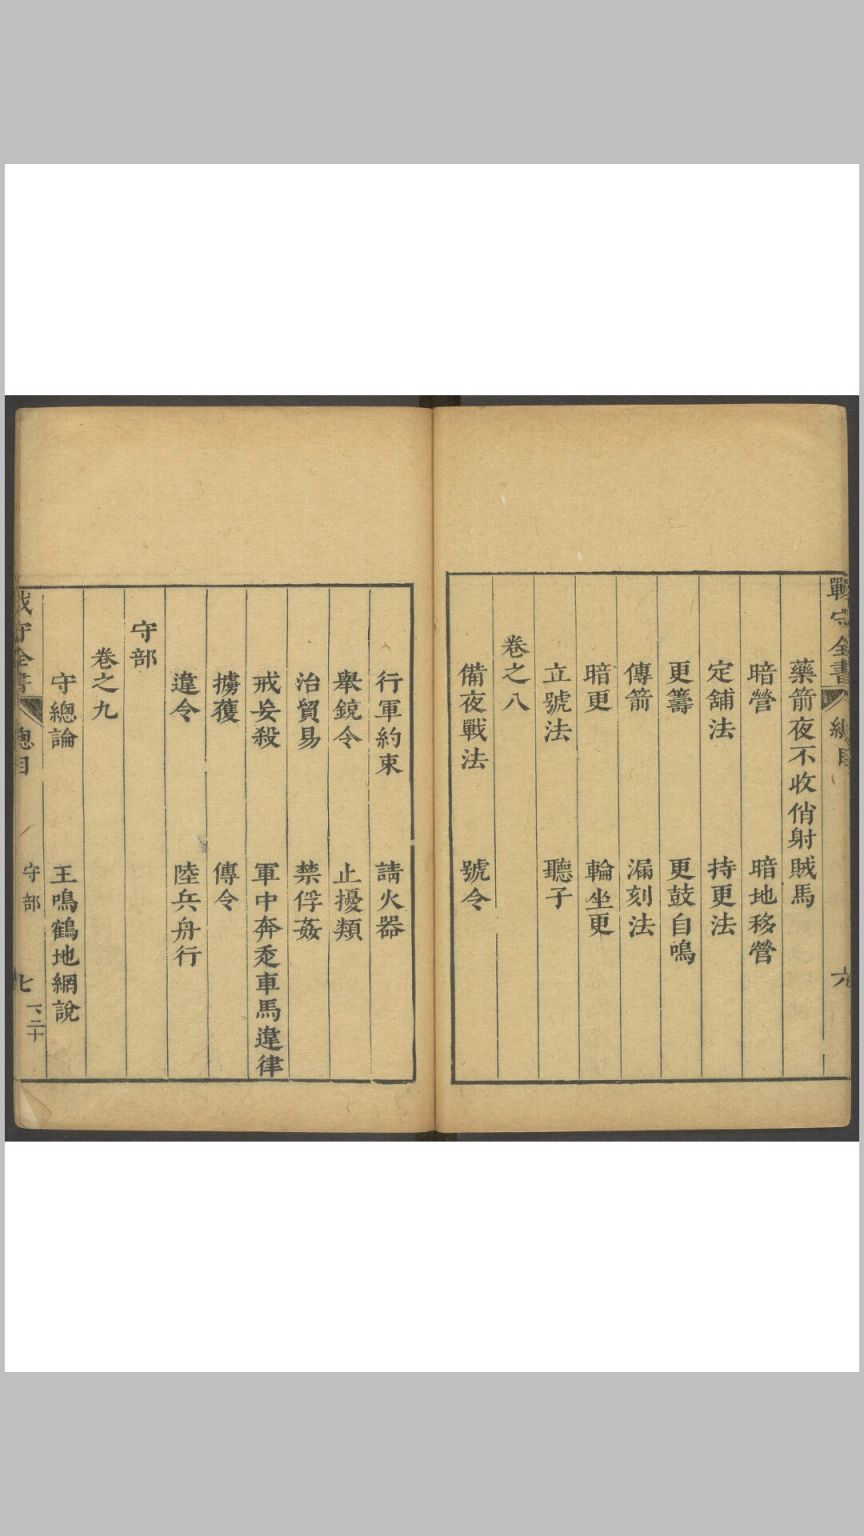 戰守全書 總目 六
藥箭夜不收俏射賊馬
暗營 暗地移營
定舖法 持更法
更籌 更鼓自鳴
傳箭 漏刻法
暗更 輪坐更
立號法 聽子
卷之八
備夜戰法 號令
行軍約束 請火器
舉鏡令 止擾類
治貿易 禁俘姦
戒妄殺 軍中奔走車馬違律
擄獲 傳令
違令 陸兵舟行
守部
卷之九
守總論 王鳴鶴地網說
戰守全書 總目 守部 七